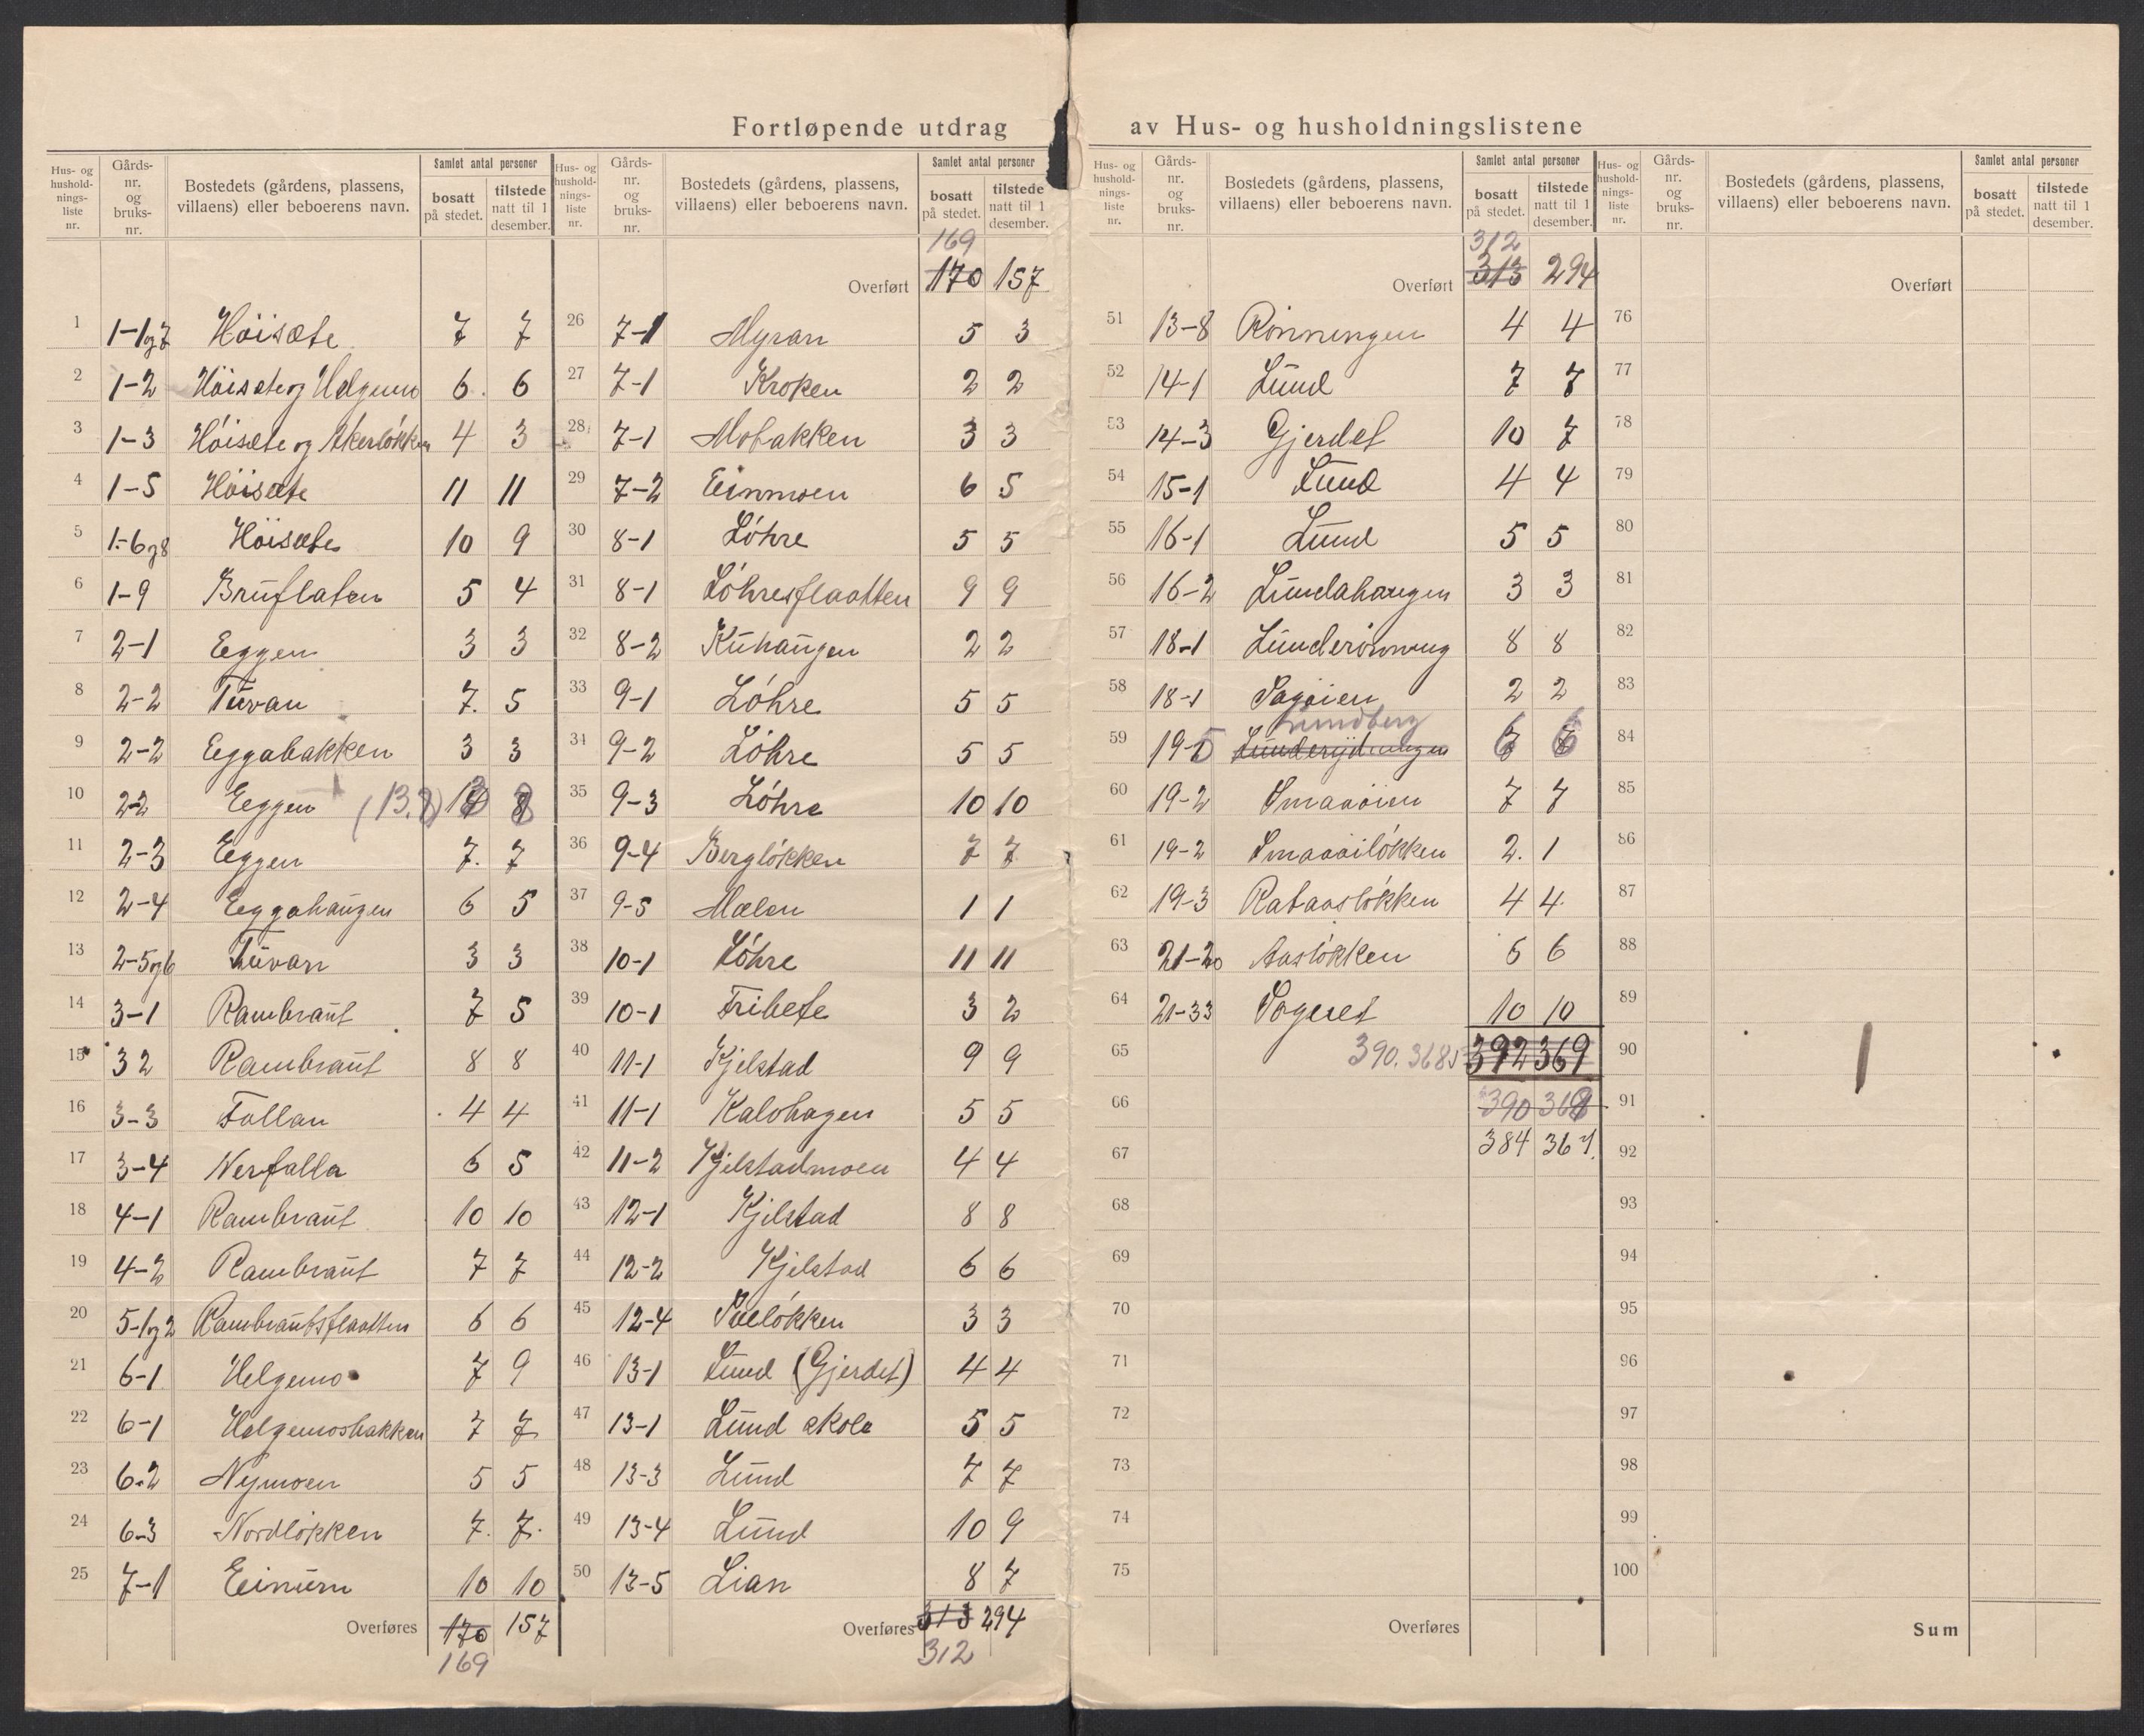 Fortløpende utdrag av Hus- og husholdningslistene
Hus- og husholdnings-liste nr. | Gårds-nr. og bruks-nr. | Bostedets (gårdens, plassens, villaens) eller beboerens navn. | Samlet antal personer | bosatt på stedet. | tilstede natt til 1 desember.
1 1-1og7 Høisæte 7 7
2 1-2 Høisæte og Helgemo 6. 6
3 1-3 Høisæte og Akerløkken 4 3
4 1-5 Høisæte 11 11
5 1-6og8 Høisæte 10 9
6 1-9 Bruflaten 5 4
7 2-1 Eggen 3 3
8 2-2 Tuvan 7. 5
9 2-2 Eggabakken 3 3
10 2-2 Eggen (13.8) 13 8
11 2-3 Eggen 7. 7
12 2-4 Eggahaugen 6 5
13 2-5og6 Tuvan 3 3
14 3-1 Rambraut 7 5
15 3 2 Rambraut 8 8
16 3-3 Follan 4 4
17 3-4 Nerfalla 6 5
18 4-1 Rambraut 10 10
19 4-2 Rambraut 7 7
20 5-1og2 Rambrautsflaatten 6 6
21 6-1 Helgemo 7 9
22 6-1 Helgemosbakken 7 7
23 6-2 Nymoen 5 5
24 6-3 Nordløkken 7. 7.
25 7-1 Einum 10 10
Overføres 170 157
169
Hus- og husholdnings-liste nr. | Gårds-nr. og bruks-nr. | Bostedets (gårdens, plassens, villaens) eller beboerens navn. | Samlet antal personer | bosatt på stedet. | tilstede natt til 1 desember.
169
Overført 170 157
26 7-1 Myran 5 3
27 7-1 Kroken 2 2
28 7-1 Mobakken 3 3
29 7-2 Einmoen 6 5
30 8-1 Løhre 5 5
31 8-1 Løhresflaatten 9 9
32 8-2 Kuhaugen 2 2
33 9-1 Løhre 5 5
34 9-2 Løhre 5 5
35 9-3 Løhre 10 10
36 9-4 Bergløkken 7 7
37 9-5 Mælen 1 1
38 10-1 Løhre 11 11
39 10-1 Tribete 3 2
40 11-1 Kjelstad 9 9
41 11-1 Kalohagen 5 5
42 11-2 Kjelstadmoen 4 4
43 12-1 Kjelstad 8 8
44 12-2 Kjelstad 6 6
45 12-4 3 3
46 13-1 Lund (Gjerdet) 4 4
47 13-1 Lund skole 5 5
48 13-3 Lund 7 7
49 13-4 Lund 10 9
50 13-5 Lian 8 7
Overføres 313 294
312
Hus- og husholdnings-liste nr. | Gårds-nr. og bruks-nr. | Bostedets (gårdens, plassens, villaens) eller beboerens navn. | Samlet antal personer | bosatt på stedet. | tilstede natt til 1 desember.
312
Overført 313 294
51 13-8 Rønningen 4 4
52 14-1 Lund 7 7
53 14-3 Gjerdet 10 7
54 15-1 Lund 4 4
55 16-1 Lund 5 5
56 16-2 Lundahaugen 3 3
57 18-1 Lunderønning 8 8
58 18-1 Sagøien 2 2
Lundberg
59 19-5 6 6
60 19-2 Smaaøien 7 7
61 19-2 Smaaøiløkken 2. 1
62 19-3 Rataasløkken 4 4
63 21-20 Aasløkken 6 6
64 21-33 Vogeret 10 10
65 390. 368 392 369
66 390 368
67 384 361
68
69
70
71
72
73
74
75
Overføres
Hus- og husholdnings-liste nr. | Gårds-nr. og bruks-nr. | Bostedets (gårdens, plassens, villaens) eller beboerens navn. | Samlet antal personer | bosatt på stedet. | tilstede natt til 1 desember.
Overført
76
77
78
79
80
81
82
83
84
85
86
87
88
89
90
91
92
93
94
95
96
97
98
99
100
Sum